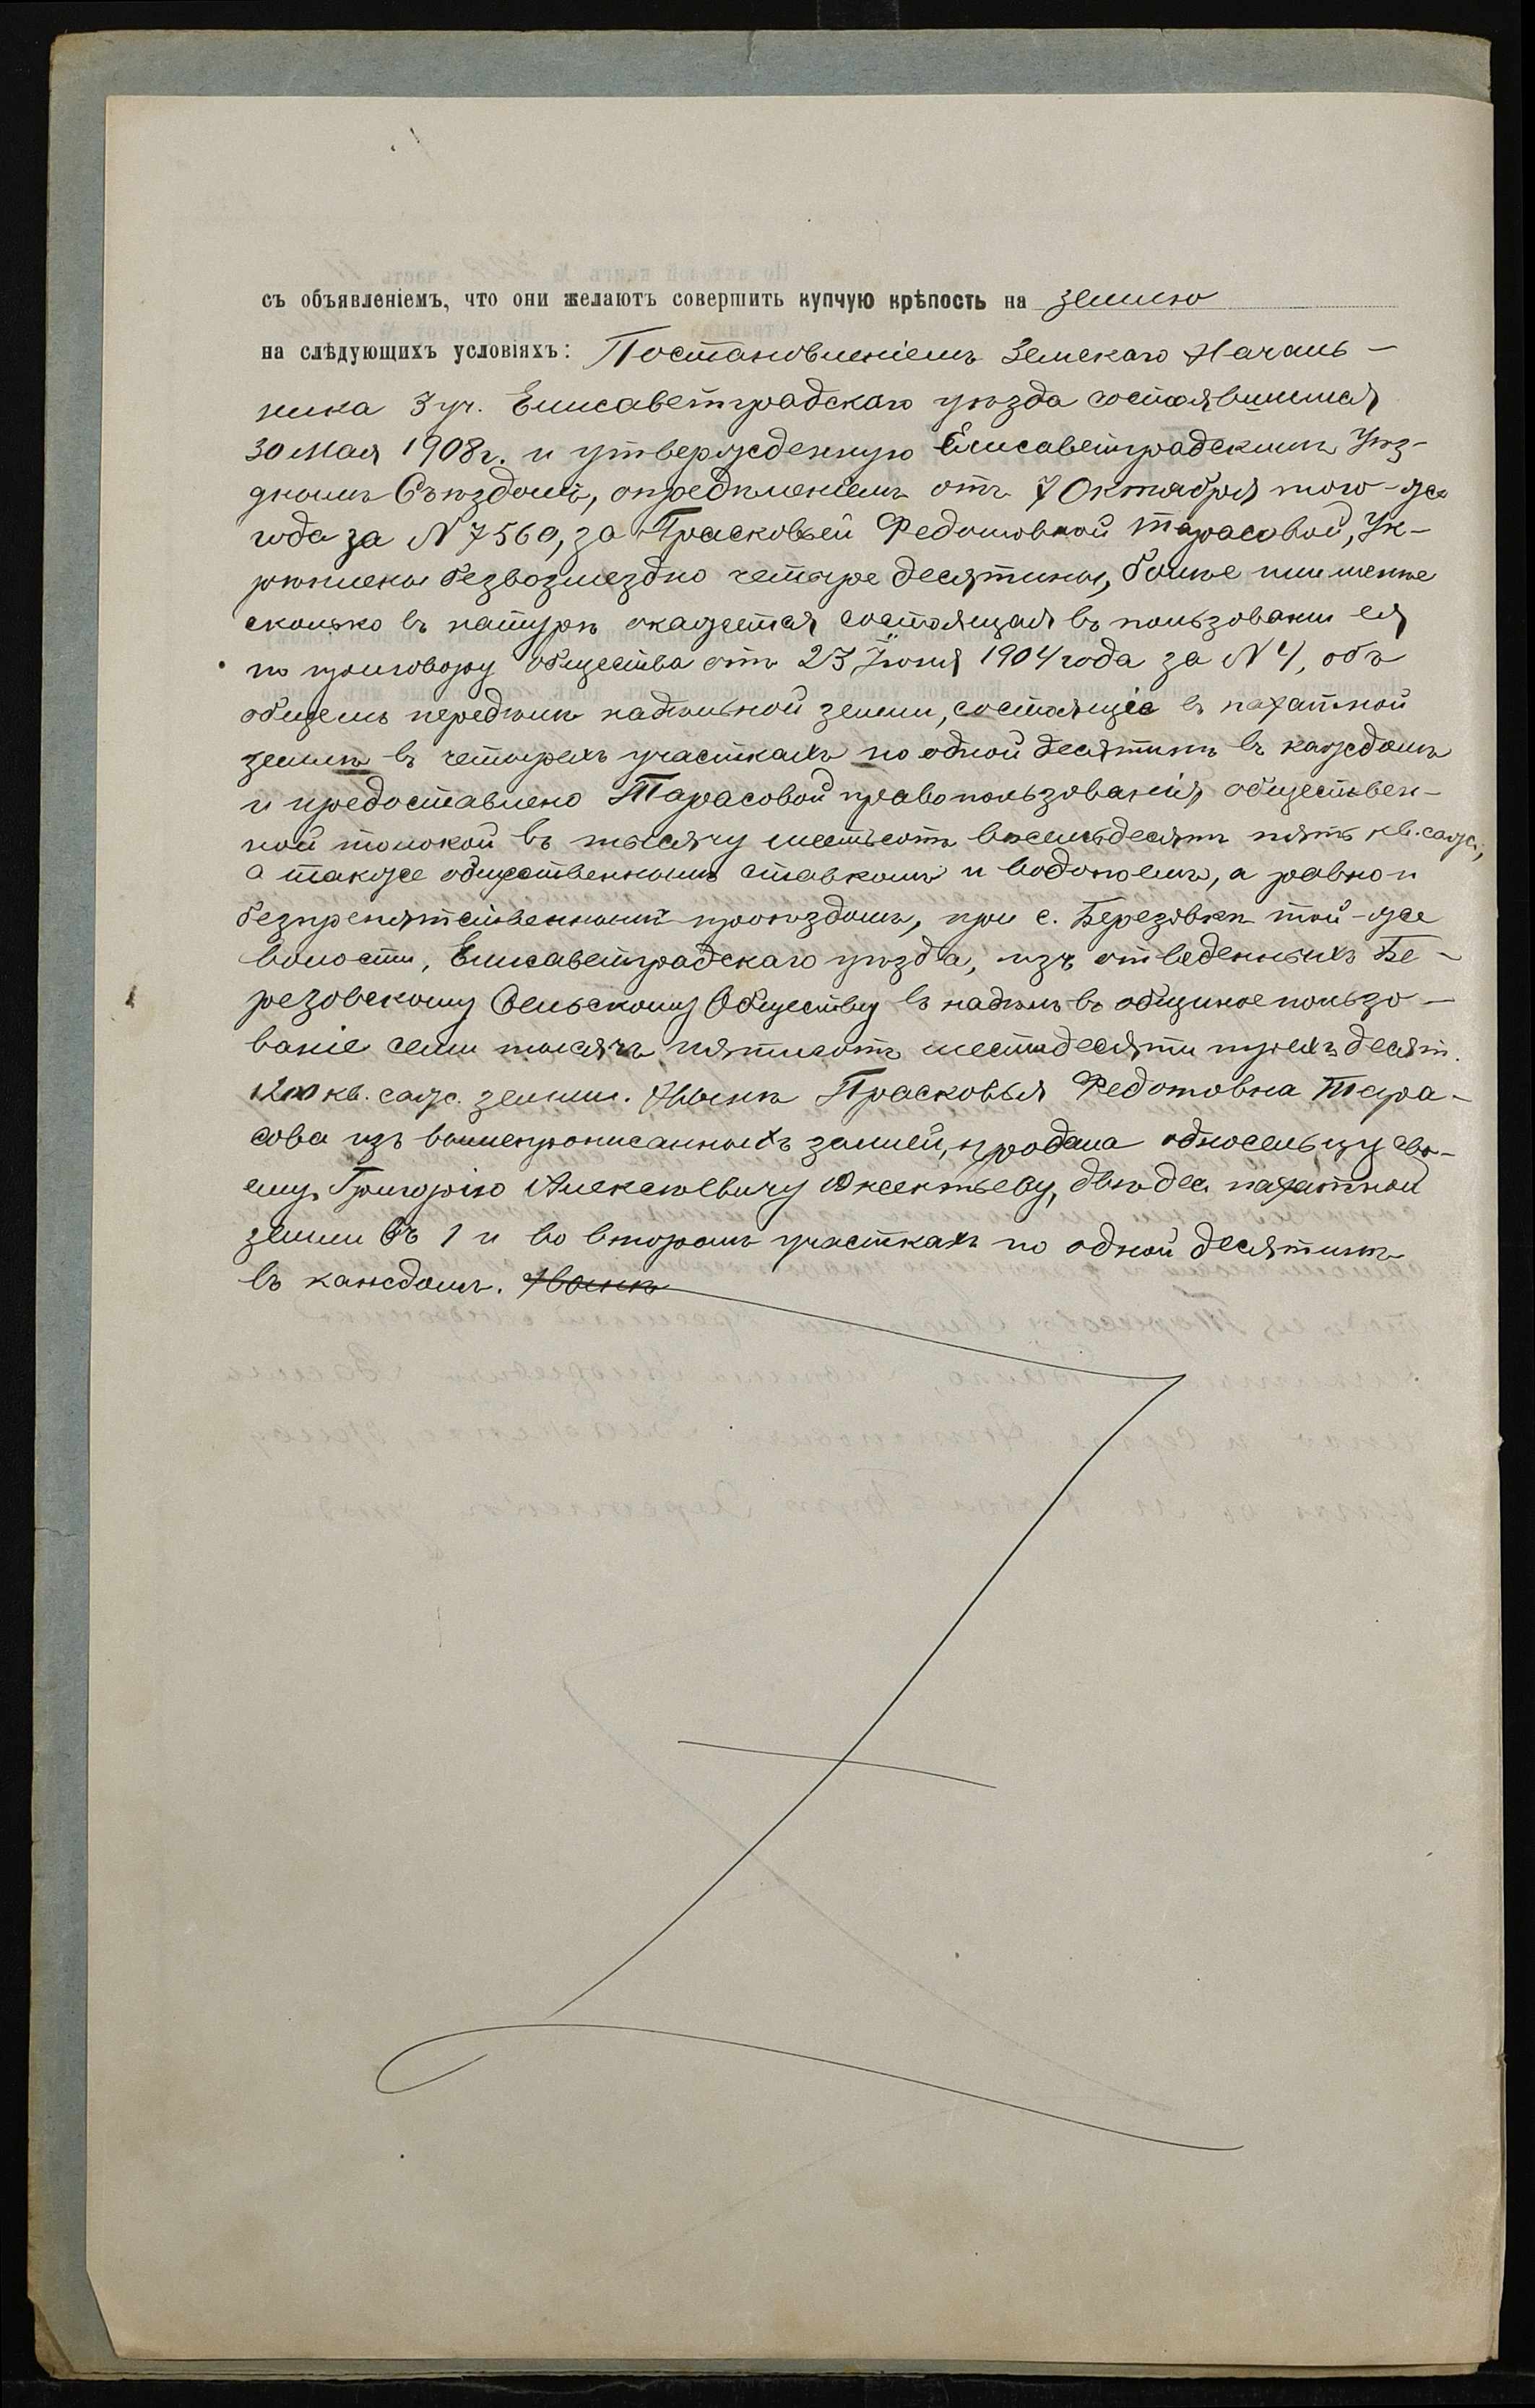 съ объявленіемъ, что они желаютъ совершить купчую крѣпость на землю
на слѣдующихъ условіяхъ: Постановленіемъ Земскаго Началь-
ника 3 уч. Елисаветградскаго уѣзда состоявшимся
30 Мая 1908 г. и утвержденную Елисаветградскимъ Уѣз-
днымъ Съѣздомъ, опредѣленіемъ отъ 7 Октября того-же
года за N 7560, за Прасковьей Федотовной Тарасовой, Ук-
рѣплены безвозмездно четыре десятины, болѣе или менѣе
сколько въ натурѣ окажется состоящая въ пользовани ея
по приговору общества отъ 23 Іюня 1904 года за N 4, объ
общемъ передѣлѣ надѣльной земли, состоящіе въ пахатной
землѣ въ четырехъ участкахъ по одной десятинѣ въ каждомъ
и предоставлено Тарасовой право пользованія обществен-
ной толокой въ тысячу шестьсотъ восемьдесятъ пять кв. саж.,
а также общественнымъ ставкомъ и водопоемъ, а равно и
безпрепятственнымъ проѣздомъ, при с. Березовкѣ той-же
волости, Елисаветградскаго уѣзда, изъ отведенныхъ Бе-
резовскому Сельскому Обществу въ надѣлъ въ общиное пользо-
ваніе семи тысячъ пятисотъ шестидесяти трехъ десят.
1200 кв. саж. земли. Нынѣ Прасковья Федотовна Тара-
сова изъ вышепрописанныхъ землей, продала односельцу сво-
ему Григорію Алексѣевичу Аксентьеву, двѣ дес. пахатной
земли въ 1 и во второмъ участкахъ по одной десятинѣ
въ каждомъ. Нынѣ